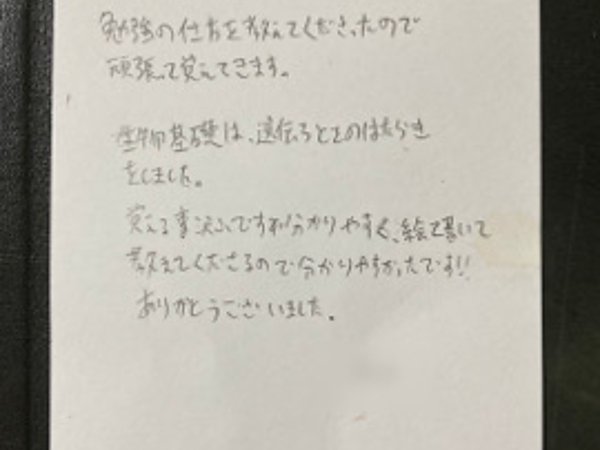 勉強の仕方を教えてくださったので
頑張って覚えてきます。
生物基礎は、遺伝子とそのはたらき
をしました。
覚える事沢山ですが分かりやすく、絵を書いて
教えてくださるので分かりやすかったです!!
ありがとうございました。